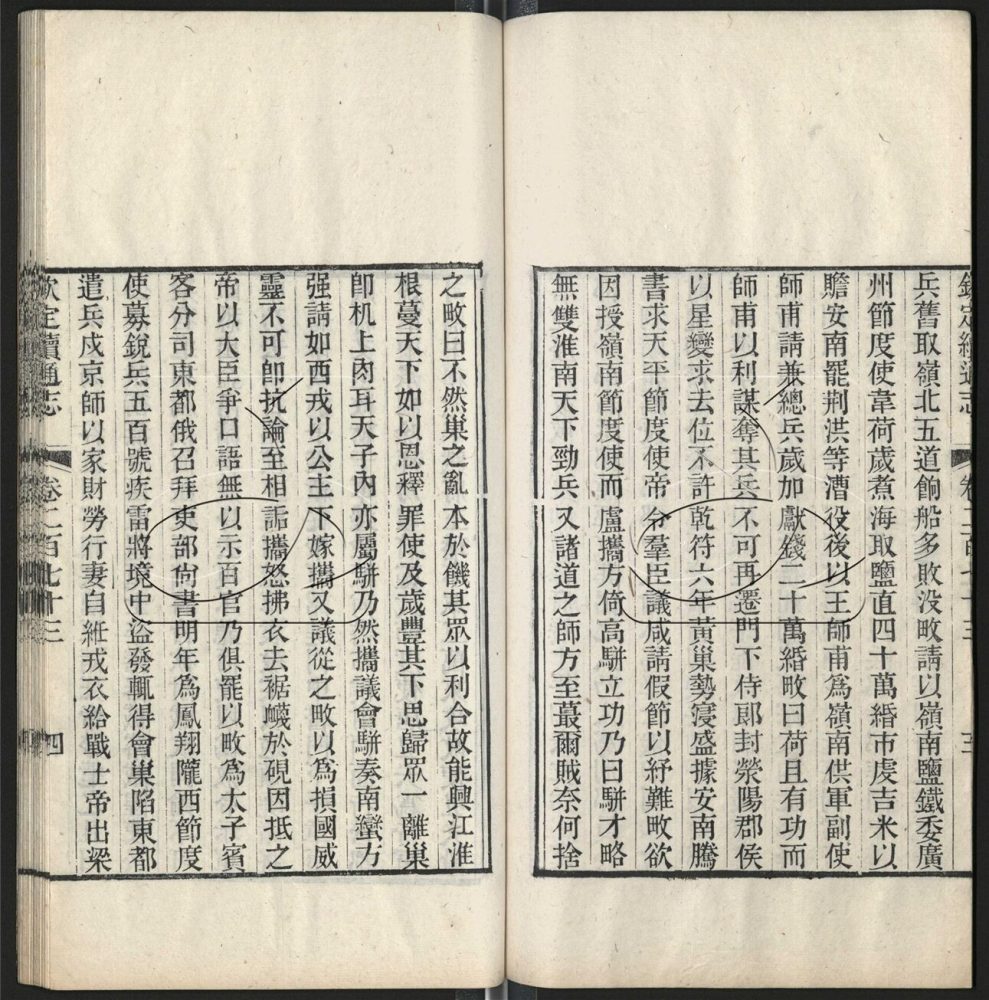 欽定續通志 卷二百七十三 三
兵舊取嶺北五道餉船多敗没畋請以嶺南鹽鐵委廣
州節度使韋荷歲煮海取鹽直四十萬緡市虔吉米以
贍安南罷荆洪等漕役後以王師甫爲嶺南供軍副使
師甫請兼總兵歲加獻錢二十萬緡畋曰荷且有功而
師甫以利謀奪其兵不可再遷門下侍郎封滎陽郡侯
以星變求去位不許乾符六年黃巢勢寖盛據安南騰
書求天平節度使帝令羣臣議咸請假節以紓難畋欲
因授嶺南節度使而盧攜方倚高駢立功乃曰駢才略
無雙淮南天下勁兵又諸道之師方至蕞爾賊奈何捨
之畋曰不然巢之亂本於饑其眾以利合故能興江淮
根蔓天下如以恩釋罪使及歲豐其下思歸眾一離巢
即机上肉耳天子內亦屬駢乃然攜議會駢奏南蠻方
强請如西戎以公主下嫁攜又議從之畋以爲損國威
靈不可即抗論至相詬攜怒拂衣去裾罥於硯因抵之
帝以大臣爭口語無以示百官乃俱罷以畋爲太子賓
客分司東都俄召拜吏部尙書明年爲鳳翔隴西節度
使募銳兵五百號疾雷將境中盜發輒得會巢陷東都
遣兵戍京師以家財勞行妻自紝戎衣給戰士帝出梁
欽定續通志 卷二百七十三 四